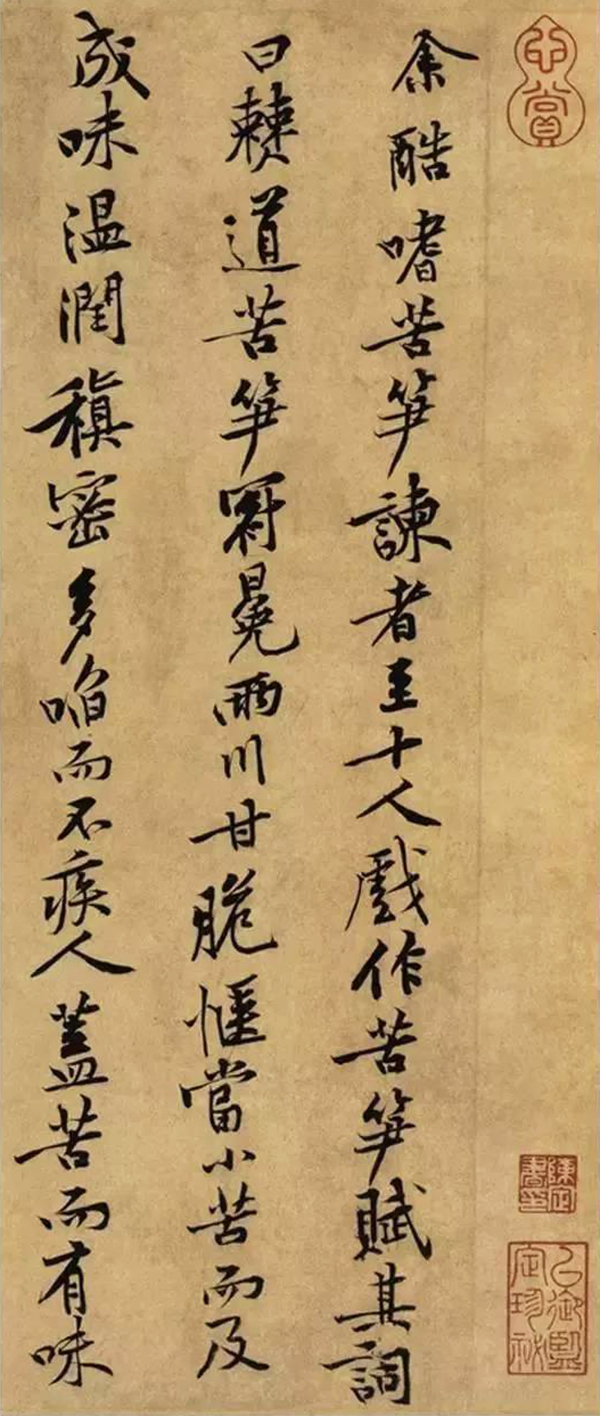 余酷嗜苦笋諫者至十人戲作苦笋賦其詞
曰僰道苦笋冠冕兩川甘脆愜當小苦而及
成味温潤稹密多啗而不疾人蓋苦而有味
陳定書印
以御監定珍祕